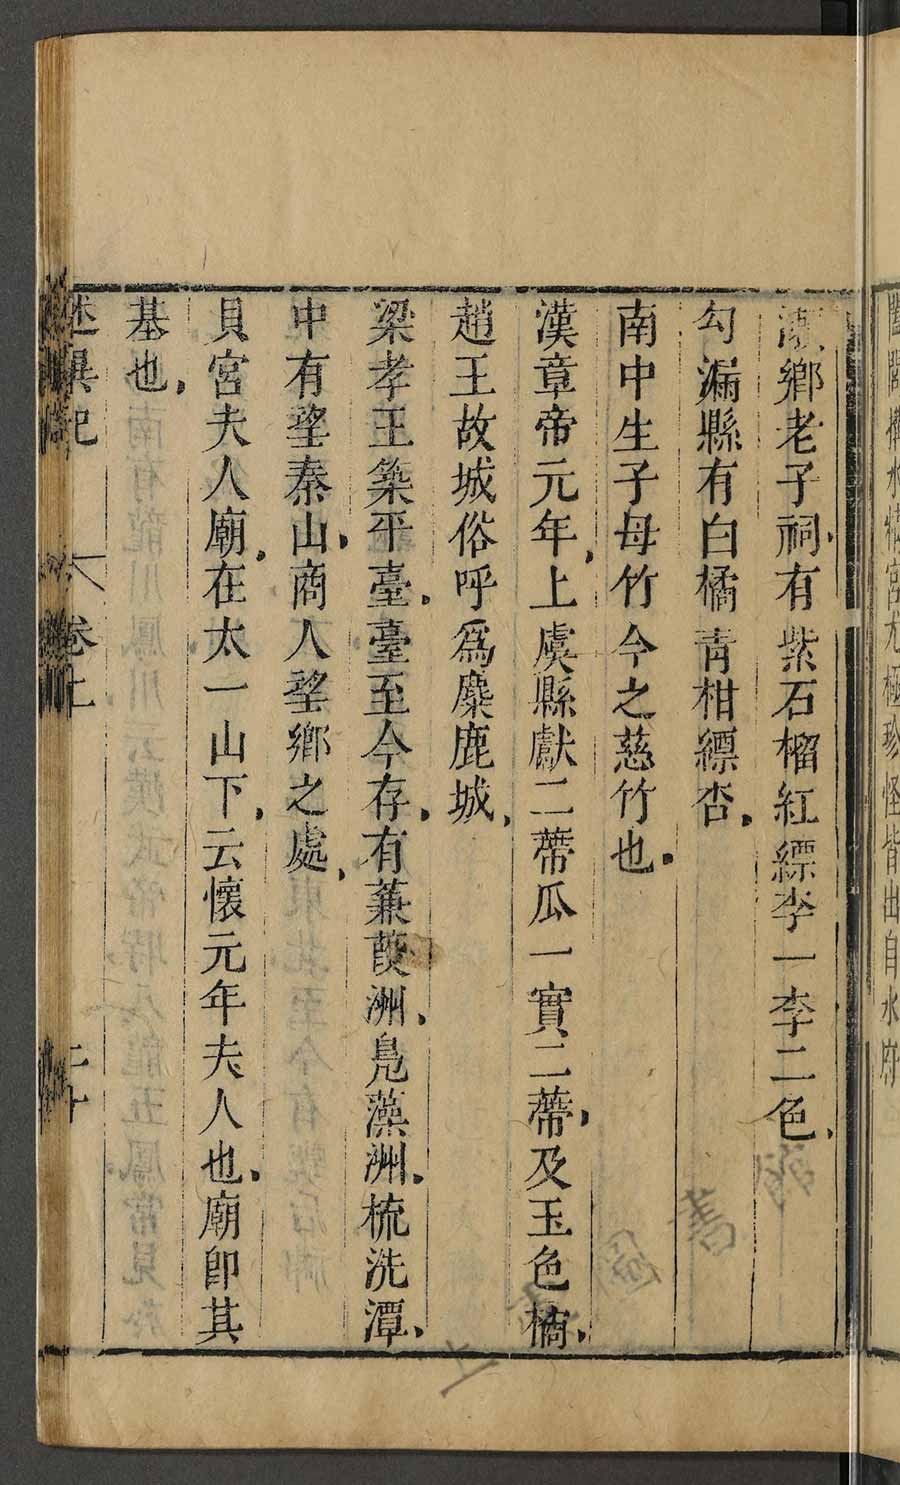 闔閭構水精宮尤極珍怪皆出自水府
瀨鄉老子祠有紫石榴紅縹李一李二色
勾漏縣有白橘青柑縹杏
南中生子母竹今之慈竹也
漢章帝元年上虞縣獻二蔕瓜一實二蔕及玉色橘
趙王故城俗呼爲麋鹿城
梁孝王築平臺臺至今存有蒹葭洲鳧藻洲梳洗潭
中有望秦山商人望鄉之處
貝宮夫人廟在太一山下云懷元年夫人也廟卽其
基也
述異記 卷上 二十